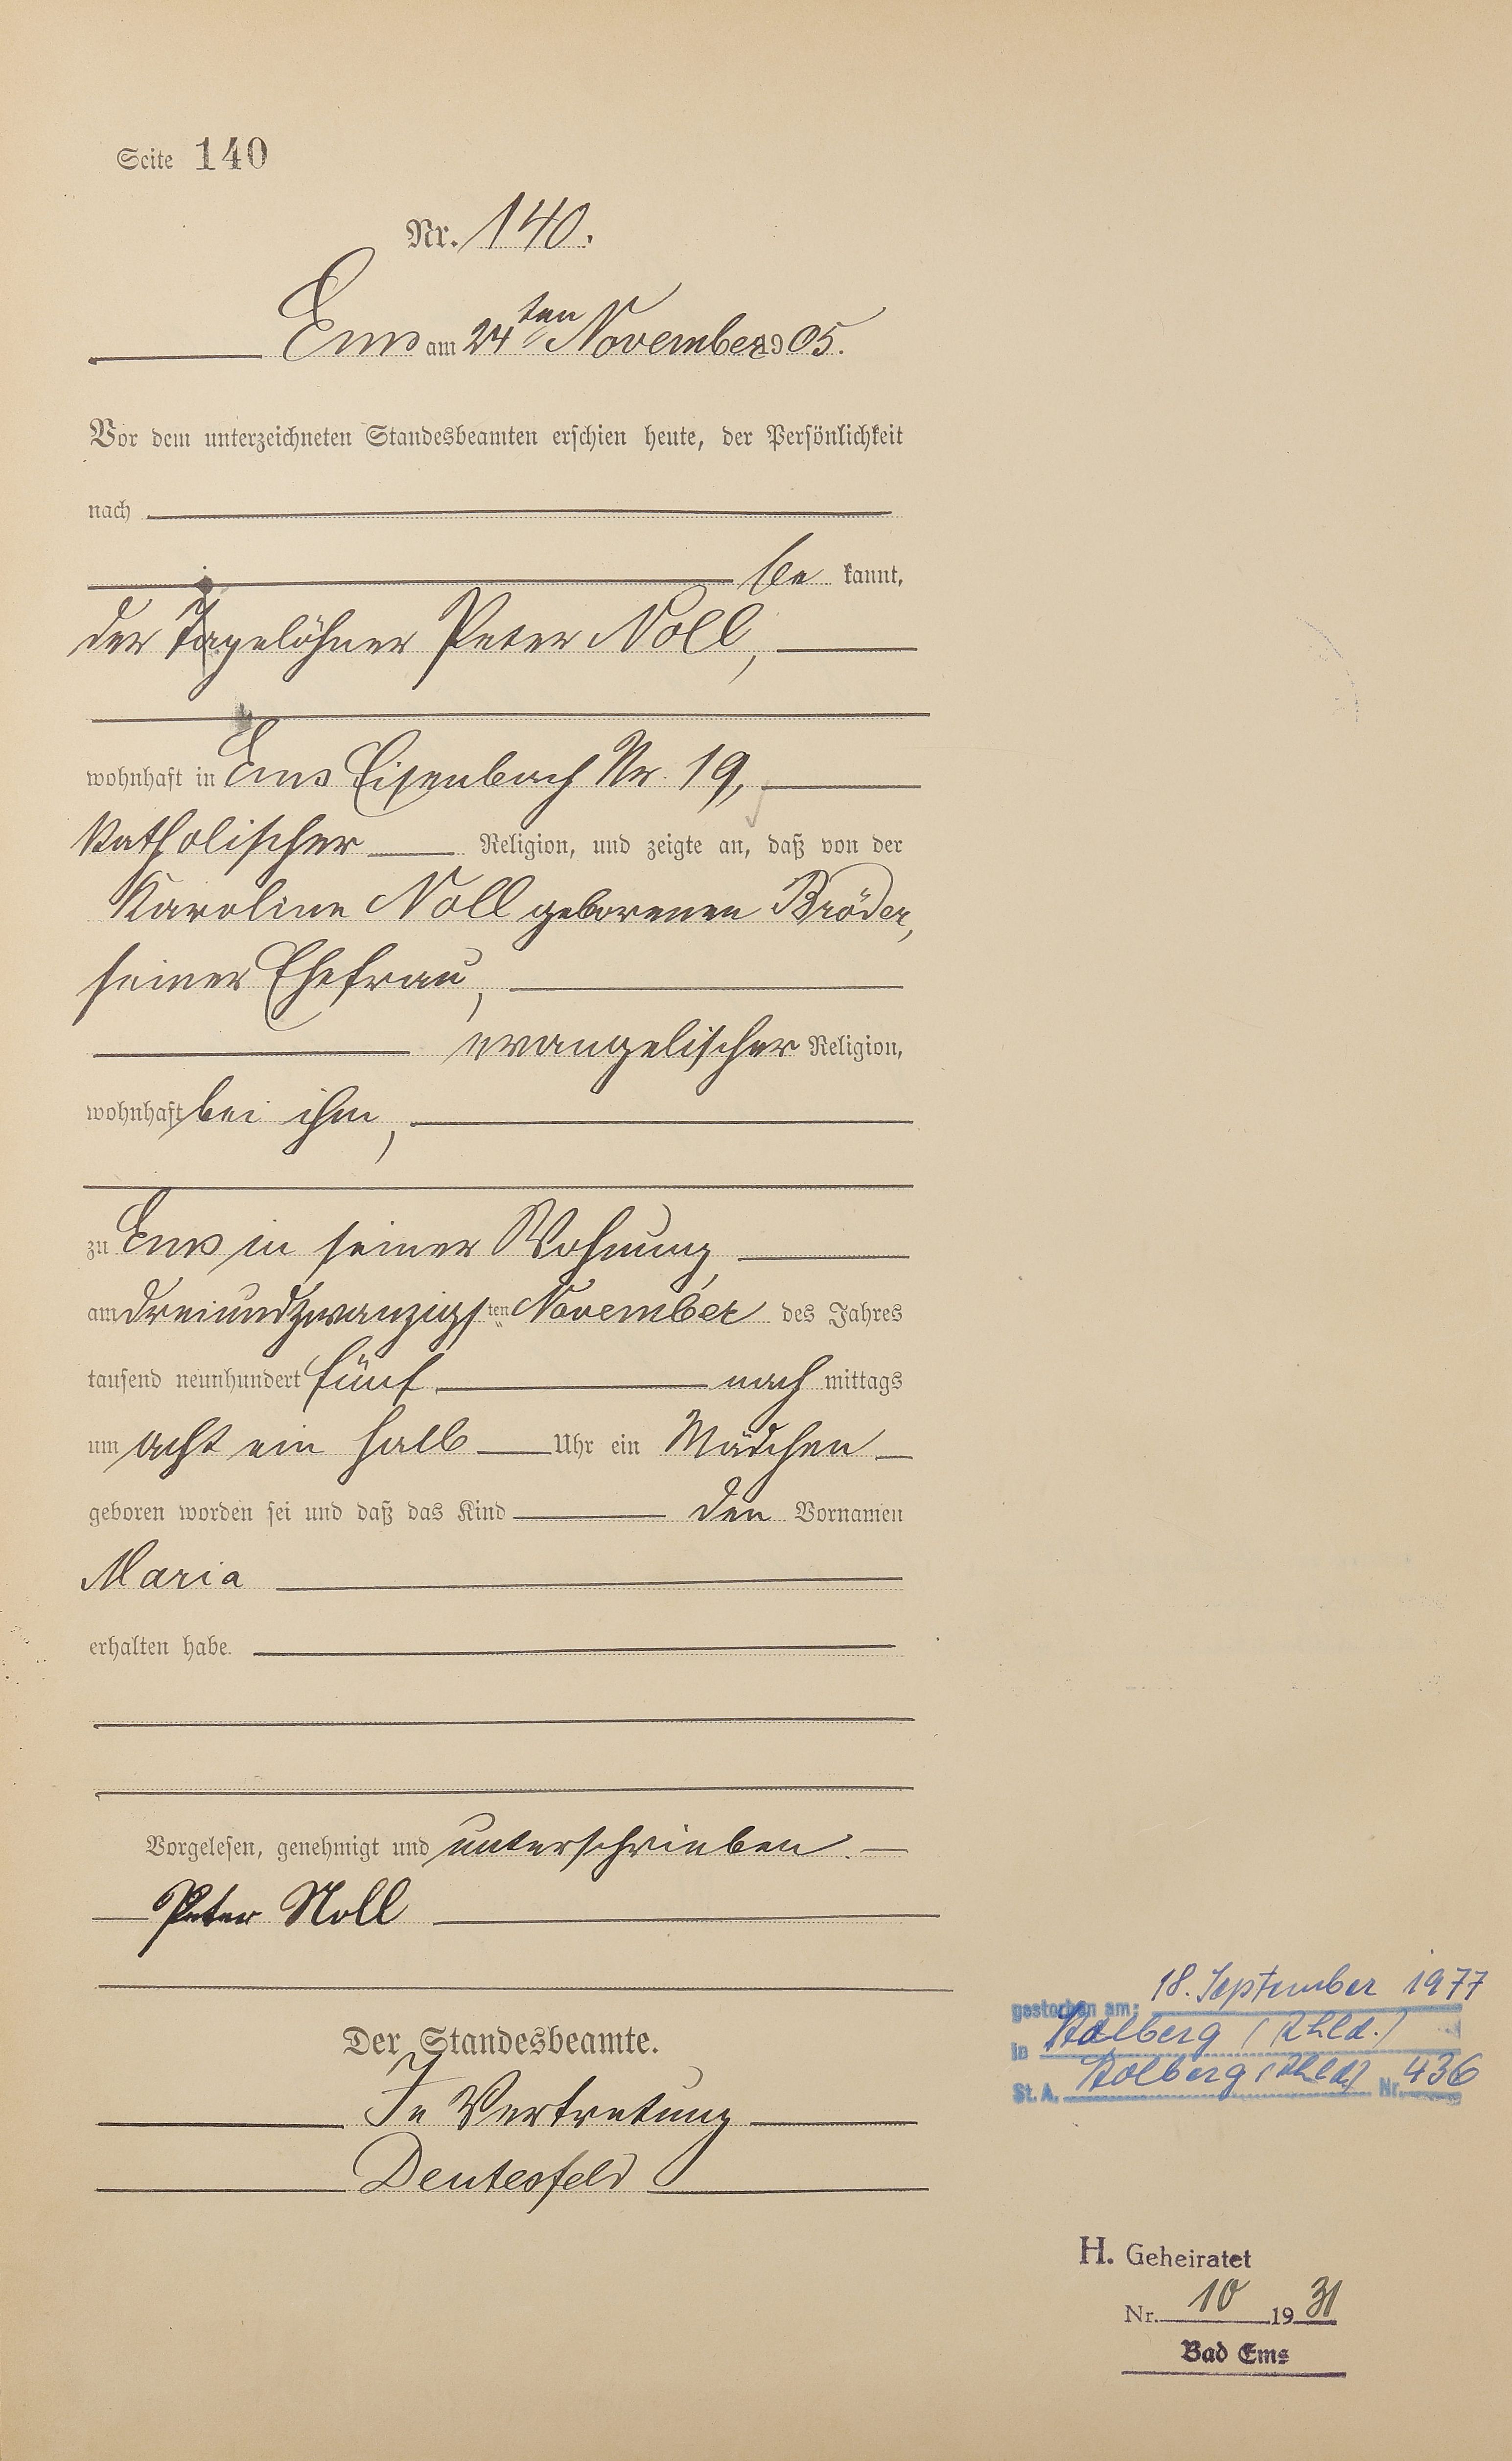 Seite 140
Nr. 140.
Ems am 24ten November 1905.
Vor dem unterzeichneten Standesbeamten erschien heute, der Persönlichkeit
nach
be kannt,
der Tagelöhner Peter Noll,
wohnhaft in Ems Eisenbach Nr. 19,
katholischer Religion, und zeigte an, daß von der
Karoline Noll geborenen Bröder,
seiner Ehefrau,
evangelischer Religion,
wohnhaft bei ihm,
zu Ems in seiner Wohnung,
am dreiundzwanzigsten November des Jahres
tausend neunhundert fünf nach mittags
um acht ein halb Uhr ein Mädchen
geboren worden sei und daß das Kind den Vornamen
Maria
erhalten habe.
Vorgelesen, genehmigt und unterschrieben.
Peter Noll
Der Standesbeamte.
In Vertretung
Deutesfeld
gestorben am: 18. September 1977
in Stolberg (Rhld.)
St. A. Stolberg (Rhld.) Nr. 436
H. Geheiratet
Nr. 10 1931
Bad Ems